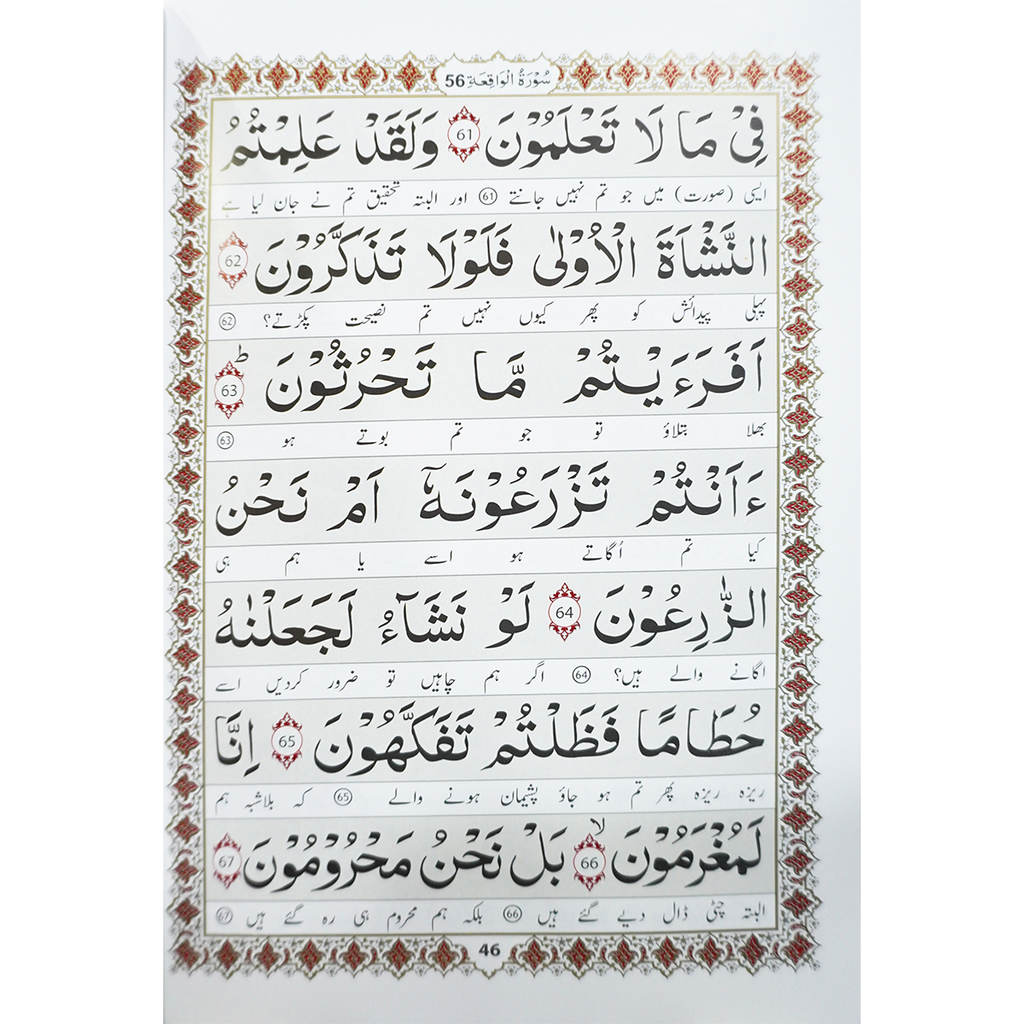 سُوْرَةُ الْوَاقِعَةِ 56
فِيْ مَا لَا تَعْلَمُوْنَ 61 وَلَقَدْ عَلِمْتُمُ
ایسی (صورت) میں جو تم نہیں جانتے 61 اور البتہ تحقیق تم نے جان لیا ہے
النَّشْاَةَ الْاُوْلٰى فَلَوْلَا تَذَكَّرُوْنَ 62
پہلی پیدائش کو پھر کیوں نہیں تم نصیحت پکڑتے؟ 62
اَفَرَءَيْتُمْ مَّا تَحْرُثُوْنَ ط 63
بھلا بتلاؤ تو جو تم بوتے ہو 63
ءَاَنْتُمْ تَزْرَعُوْنَهٗٓ اَمْ نَحْنُ
کیا تم اُگاتے ہو اسے یا ہم ہی
الزّٰرِعُوْنَ 64 لَوْ نَشَآءُ لَجَعَلْنٰهُ
اگانے والے ہیں؟ 64 اگر ہم چاہیں تو ضرور کردیں اسے
حُطَامًا فَظَلْتُمْ تَفَكَّهُوْنَ 65 اِنَّا
ریزہ ریزہ پھر تم ہو جاؤ پشیمان ہونے والے 65 کہ بلاشبہ ہم
لَمُغْرَمُوْنَ لا 66 بَلْ نَحْنُ مَحْرُوْمُوْنَ 67
البتہ چٹی ڈال دیے گئے ہیں 66 بلکہ ہم محروم ہی رہ گئے ہیں 67
46